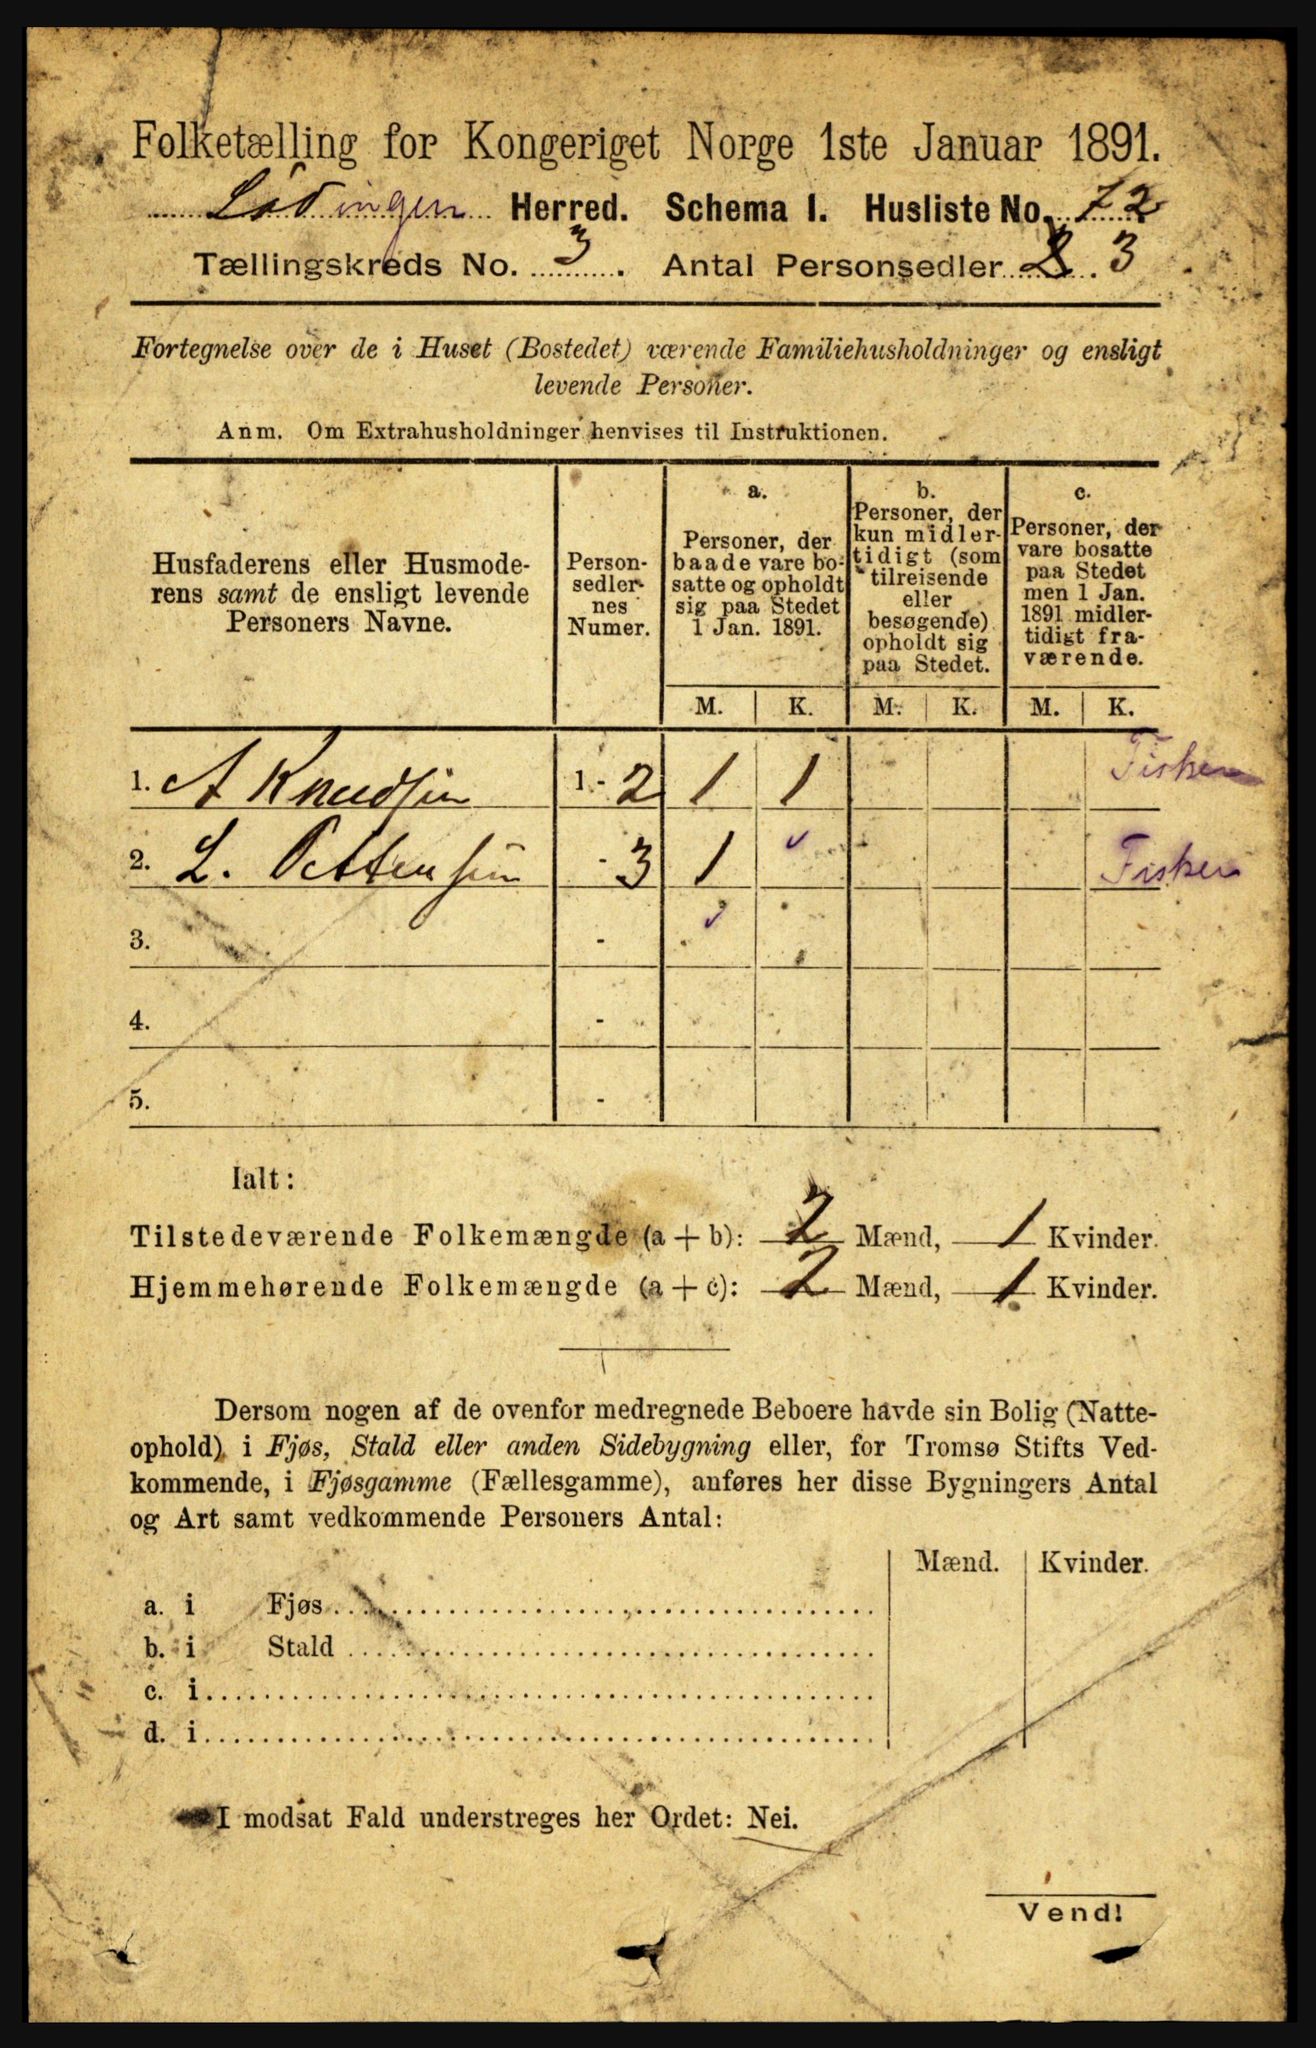 Folketælling for Kongeriget Norge 1ste Januar 1891.
Lødingen Herred. Schema I. Husliste No. 72
Tællingskreds No. 3. Antal Personsedler 2. 3
Fortegnelse over de i Huset (Bostedet) værende Familiehusholdninger og ensligt
levende Personer.
Anm. Om Extrahusholdninger henvises til Instruktionen.
Husfaderens eller Husmode-
rens samt de ensligt levende
Personers Navne.
Person-
sedler-
nes
Numer.
a.
Personer, der
baade vare bo-
satte og opholdt
sig paa Stedet
1 Jan. 1891.
b.
Personer, der
kun midler-
tidigt (som
tilreisende
eller
besøgende)
opholdt sig
paa Stedet.
c.
Personer, der
vare bosatte
paa Stedet
men 1 Jan.
1891 midler-
tidigt fra-
værende.
M. K. M. K. M. K.
1. A Knudsen 1 - 2 1 1 Fisker
2. L. Pettersen - 3 1 Fisker
3. -
4. -
5. -
Ialt:
Tilstedeværende Folkemængde (a + b): 2 Mænd, 1 Kvinder.
Hjemmehørende Folkemængde (a + c): 2 Mænd, 1 Kvinder.
Dersom nogen af de ovenfor medregnede Beboere havde sin Bolig (Natte-
ophold) i Fjøs, Stald eller anden Sidebygning eller, for Tromsø Stifts Ved-
kommende, i Fjøsgamme (Fællesgamme), anføres her disse Bygningers Antal
og Art samt vedkommende Personers Antal:
Mænd. Kvinder.
a. i Fjøs
b. i Stald
c. i
d. i
I modsat Fald understreges her Ordet: Nei.
Vend!